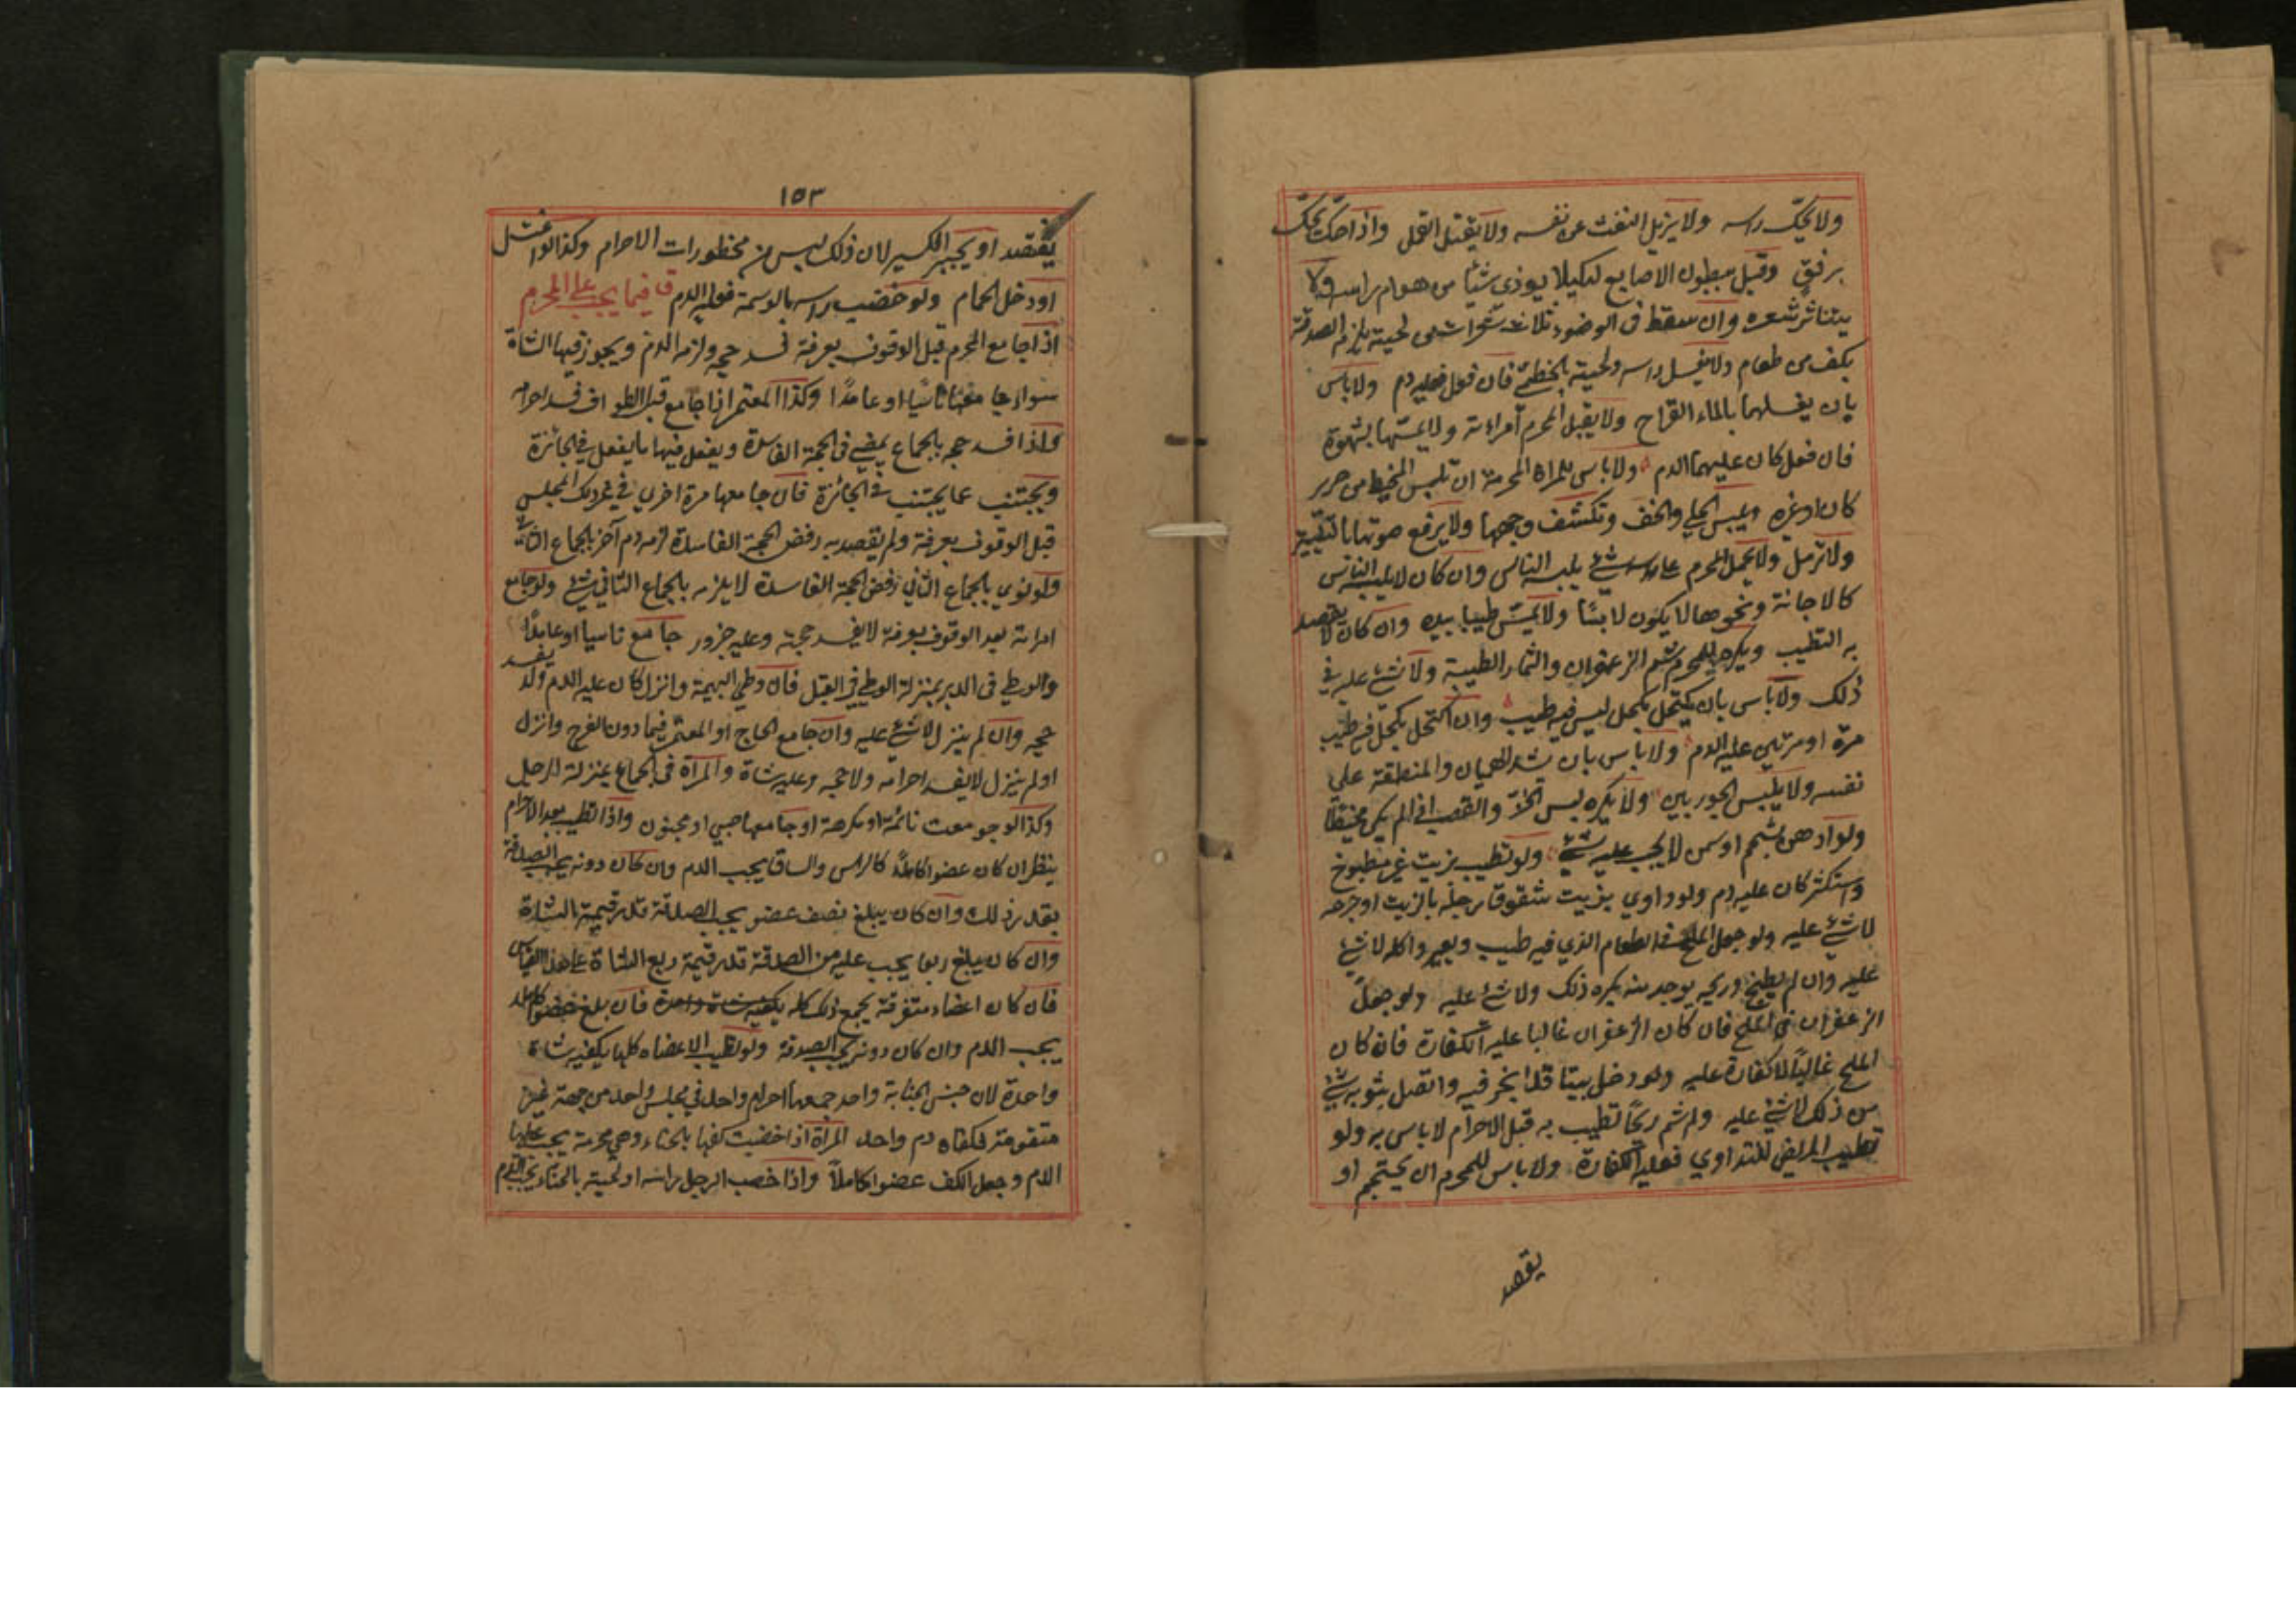 ولا يحك راسه ولا يزيل التفث عن نفسه ولا يقتل القمل واذا حك يحك
برفق وقيل ببطون الاصابع لكيلا يوذي شيأ من هوام راسه ولا
يتناثر شعره وان سقط في الوضوء ثلاث شعرات من لحيته يلزمه الصدقة
بكف من طعام ولا يغسل راسه ولحيته بالخطمي فان فعل فعليه دم ولا باس
بان يغسلهما بالماء القراح ولا يقبل المحرم امراءته ولا يمسها بشهوة
فان فعل كان عليهما الدم ولا باس للمراة المحرمة ان تلبس المخيط من حرير
كان او غيره ويلبس الحلي والخف وتكشف وجهها ولا يرفع صوتها بالتلبية
ولا ترمل ولا يحمل المحرم على راسه شئ يلبسه الناس وان كان لا يلبسه الناس
كالاجانة ونحوها لا يكون لابسًا ولا يمس طيبا بيده وان كان لا يقصد
به التطيب ويكره للمحرم شم الزعفران والثمار الطيبة ولا شئ عليه في
ذلك ولا باس بان يكتحل بكحل ليس فيه طيب وان اكتحل بكحل فيه طيب
مرة او مرتين عليه الدم ولا باس بان يشد الهميان والمنطقة على
نفسه ولا يلبس الجوربين ولا يكره لبس الخز والقصب اذا لم يكن مخيطًا
ولو ادهن بشحم او سمن لا يجب عليه شئ ولو تطيب بزيت غير مطبوخ
واستكثر كان عليه دم ولو داوي بزيت شقوق رجله بالزيت او جرحه
لا شئ عليه ولو جعل الملح في الطعام الذي فيه طيب واكله لا شئ
عليه وان لم يطبخ وريحه يوجد منه يكره ذلك ولا شئ عليه ولو جعل
الزعفران في الملح فان كان الزعفران غالبا عليه الكفارة فان كان
الملح غالبًا لا كفارة عليه ولو دخل بيتا قد ابخر فيه واتصل بثوبه شئ
من ذلك لا شئ عليه ولو شم ريحًا تطيب به قبل الاحرام لا باس به ولو
تطيب المريض للتداوي فعليه الكفارة ولا باس للمحرم ان يحتجم او
يقصد
١٥٣
يفقصد او يجبر الكسير لان ذلك ليس من محظورات الاحرام وكذا لو اغتسل
او دخل الحمام ولو خضب راسه بالوسمة فعليه الدم ف فيما يجب على المحرم
اذا جامع المحرم قبل الوقوف بعرفة فسد حجه ولزمه الدم ويجوز فيها الشاة
سواء جامعها ناسيًا او عامدًا وكذا المعتمر اذا جامع قبل الطواف فسد احرامه
واذا فسد حجه بالجماع يمضي في الحجة الفاسدة ويفعل فيها ما يفعل في الجائزة
ويجتنب عما يجتنب في الجائزة فان جامعها مرة اخري في غير ذلك المجلس
قبل الوقوف بعرفة ولم يقصد به رفض الحجة الفاسدة لزمه دم آخر بالجماع الثاني
ولو نوي بالجماع الثاني رفض الحجة الفاسدة لا يلزمه بالجماع الثاني شئ ولو جامع
امراته بعد الوقوف بعرفة لا يفسد حجته وعليه جزور جامع ناسيا او عامدًا
والوطي في الدبر بمنزلة الوطي في القبل فان وطي البهيمة وانزل كان عليه الدم ولا يفسد
حجه وان لم ينزل لا شئ عليه وان جامع الحاج او المعتمر فيما دون الفرج وانزل
او لم ينزل لا يفسد احرامه ولا حجه وعليه شاة والمرأة في الجماع بمنزلة الرجل
وكذا لو جومعت نائمة او مكرهة او جامعها صبي او مجنون واذا تطيب بعد الاحرام
ينظر ان كان عضوا كاملًا كالراس والساق يجب الدم وان كان دونه يجب الصدقة
بقدر ذلك وان كان يبلغ نصف عضو يجب الصدقة قدر قيمة الشاة
وان كان يبلغ ربعا يجب عليه من الصدقة قدر قيمة ربع الشاة على هذا القياس
فان كان اعضاء متفرقة يجمع ذلك كله يكفيه شاة واحدة فان بلغ عضوا كاملا
يجب الدم وان كان دونه يجب الصدقة ولو تطيب الاعضاء كلها يكفيه شاة
واحدة لان جنس الجناية واحد جمعها احرام واحد في مجلس واحد من جهة غير
متقومة فكفاه دم واحد المرأة اذا خضبت كفها بالحناء وهي محرمة يجب عليها
الدم وجعل الكف عضوا كاملًا واذا خضب الرجل راسه او لحيته بالحناء يجب الدم